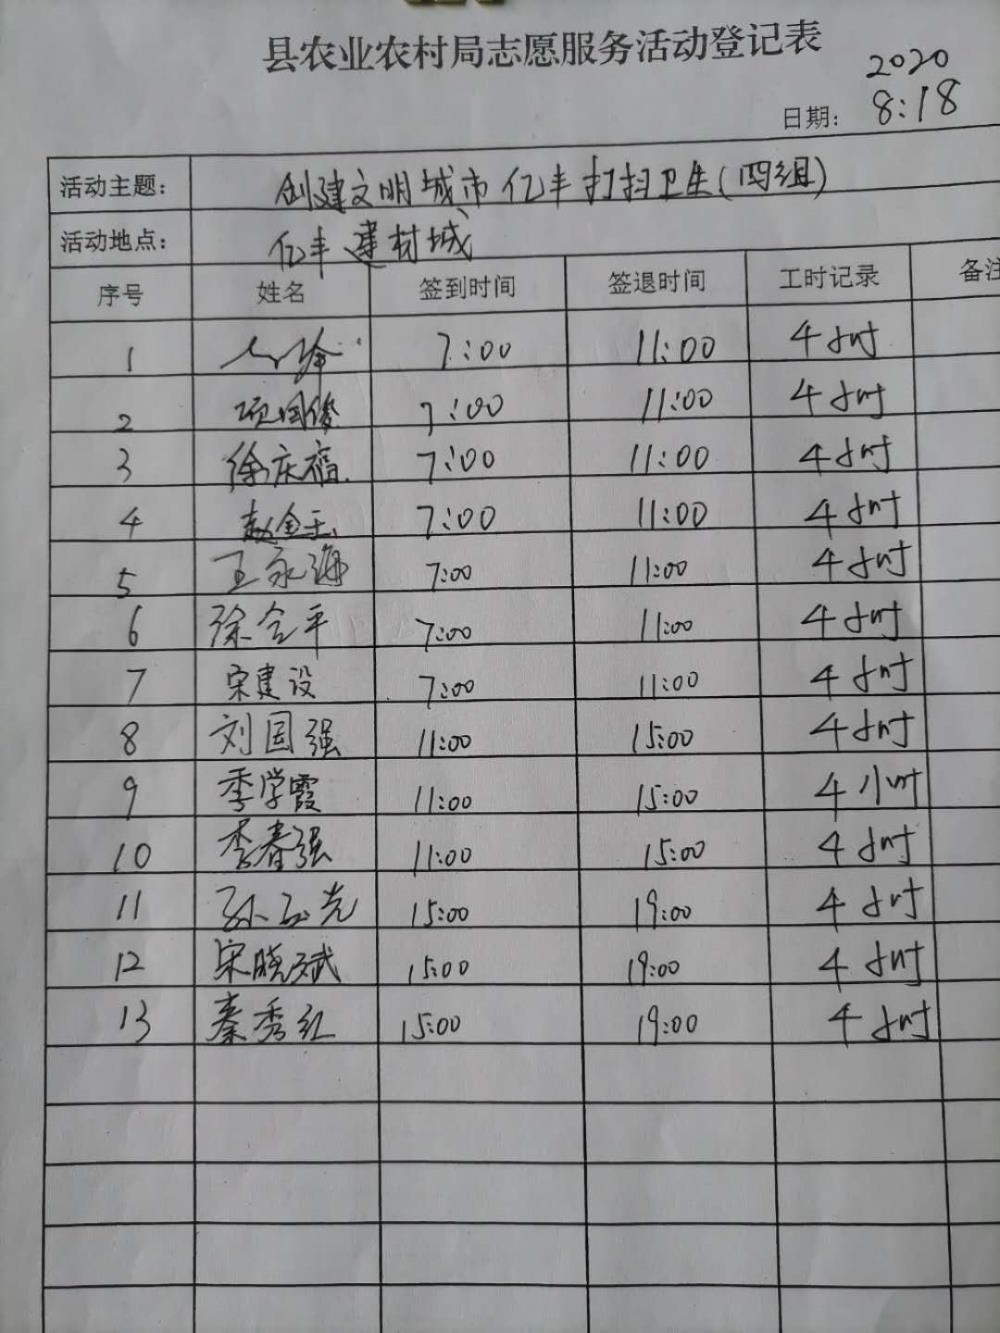 县农业农村局志愿服务活动登记表
2020
日期: 8:18
活动主题: 创建文明城市亿丰打扫卫生(四组)
活动地点: 亿丰建材城
序号 姓名 签到时间 签退时间 工时记录 备注
1 7:00 11:00 4小时
2 项国俊 7:00 11:00 4小时
3 徐庆福 7:00 11:00 4小时
4 赵金玉 7:00 11:00 4小时
5 王永海 7:00 11:00 4小时
6 徐合平 7:00 11:00 4小时
7 宋建设 7:00 11:00 4小时
8 刘国强 11:00 15:00 4小时
9 季学霞 11:00 15:00 4小时
10 李春强 11:00 15:00 4小时
11 孙玉光 15:00 19:00 4小时
12 宋晓斌 15:00 19:00 4小时
13 秦秀红 15:00 19:00 4小时